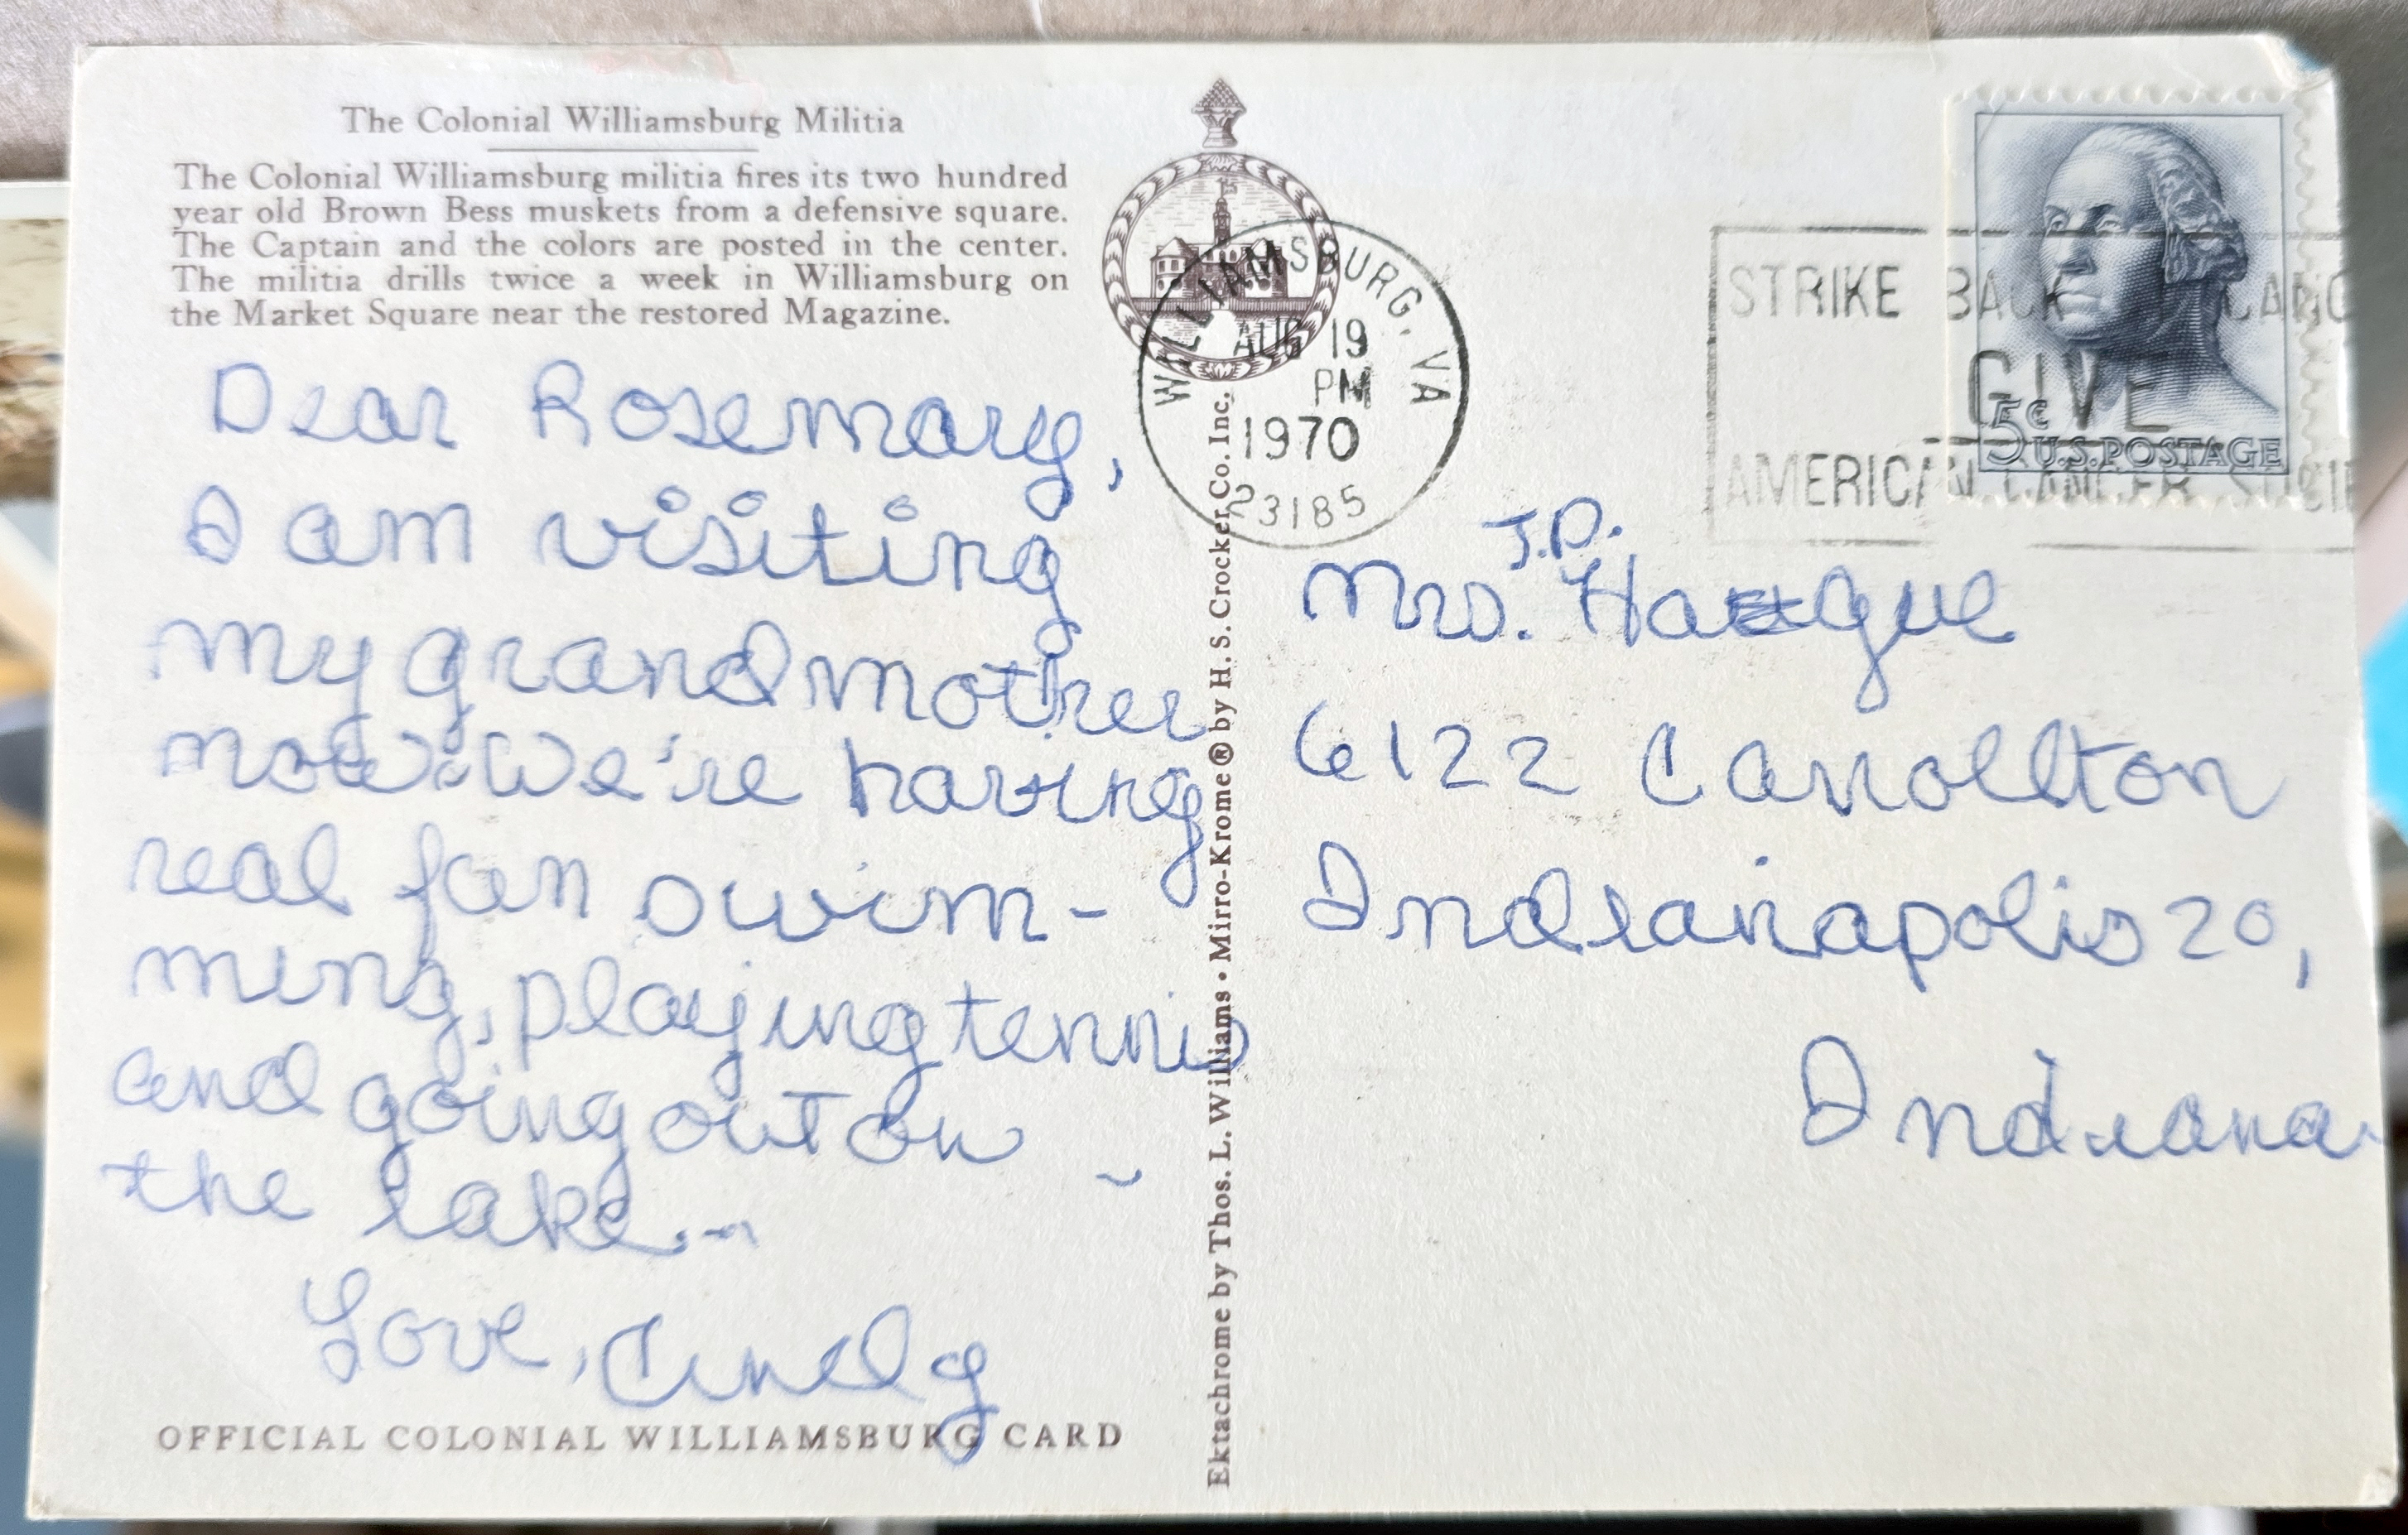 The Colonial Williamsburg Militia
The Colonial Williamsburg militia fires its two hundred
year old Brown Bess muskets from a defensive square.
The Captain and the colors are posted in the center.
The militia drills twice a week in Williamsburg on
the Market Square near the restored Magazine.
Dear Rosemary,
I am visiting
my grandmother
now. We're having
real fun swim-
ming, playing tennis
and going out on
the lake.
Love, Cindy
OFFICIAL COLONIAL WILLIAMSBURG CARD
Ektachrome by Thos. L. Williams • Mirro-Krome® by H. S. Crocker Co. Inc.
WILLIAMSBURG, VA
AUG 19
PM
1970
23185
STRIKE BACK CANC
GIVE
AMERICAN CANCER SOCIE
5c U.S. POSTAGE
J.D.
Mrs. Hague
6122 Carrollton
Indianapolis 20,
Indiana